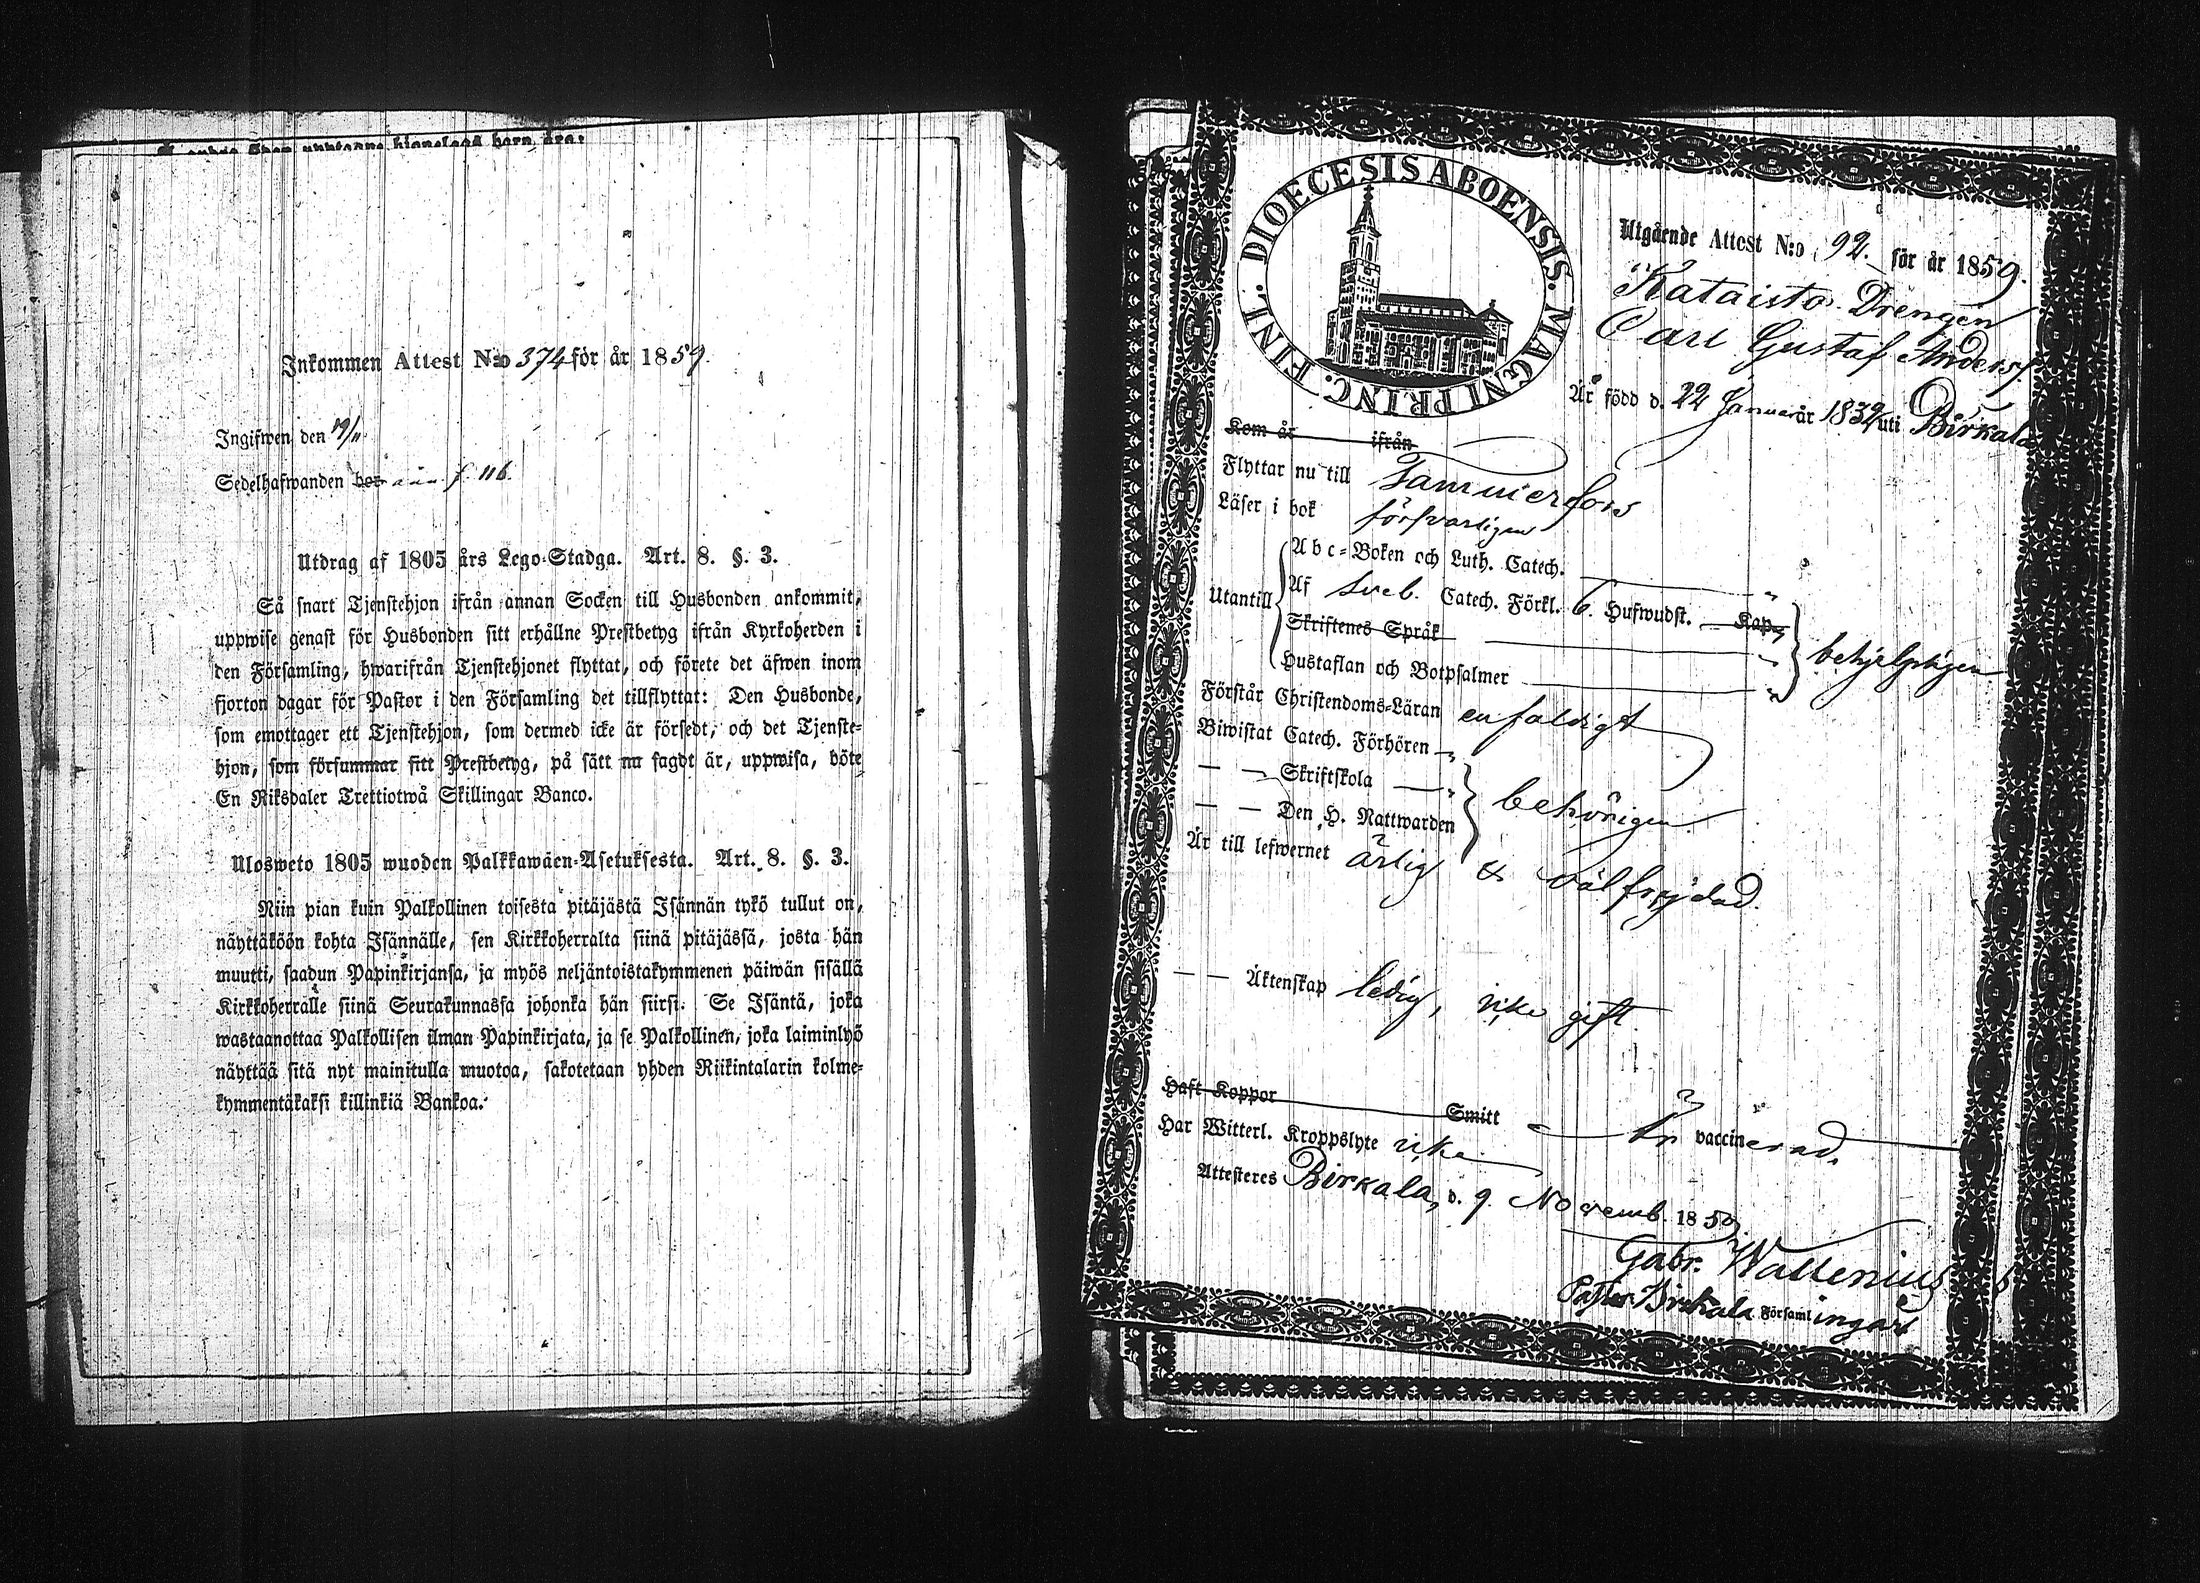 Inkommen Attest N:o 374 för år 1859.
Ingifwen den 19/11
Sedelhafwanden bor f. 116.
Utdrag af 1805 års Lego-Stadga. Art. 8. §. 3.
Så snart Tjenstehjon ifrån annan Socken till Husbonden ankommit,
uppwise genast för Husbonden sitt erhållne Prestbetyg ifrån Kyrkoherden i
den Församling, hwarifrån Tjenstehjonet flyttat, och förete det äfwen inom
fjorton dagar för Pastor i den Församling det tillflyttat: Den Husbonde,
som emottager ett Tjenstehjon, som dermed icke är försedt, och det Tjenste-
hjon, som försummar sitt Prestbetyg, på sätt nu sagdt är, uppwisa, böte
En Riksdaler Trettiotwå Skillingar Banco.
Ulosweto 1805 wuoden Palkkawäen-Asetuksesta. Art. 8. §. 3.
Niin pian kuin Palkollinen toisesta pitäjästä Isännän tykö tullut on,
näyttäköön kohta Isännälle, sen Kirkkoherralta siinä pitäjässä, josta hän
muutti, saadun Papinkirjansa, ja myös neljäntoistakymmenen päiwän sisällä
Kirkkoherralle siinä Seurakunnassa johonka hän siirsi. Se Isäntä, joka
wastaanottaa Palkollisen ilman Papinkirjata, ja se Palkollinen, joka laiminlyö
näyttää sitä nyt mainitulla muotoa, sakotetaan yhden Riikintalarin kolme-
kymmentäkaksi killinkiä Bankoa.
DIOECESIS ABOENSIS. MAGNI PRINC. FINL.
Utgående Attest N:o 92. för år 1859.
Kataisto Drengen
Carl Gustaf Anders:
Är född d. 22 Januar år 1832 uti Birkala
Kom år ifrån
Flyttar nu till Tammerfors
Läser i bok försvarligen
Utantill
Abc-Boken och Luth. Catech.
Af Sveb. Catech. Förkl. 6. Hufwudst. Kap.
Skriftenes Språk
Hustaflan och Botpsalmer
behjelpligen
Förstår Christendoms-Läran enfaldigt
Biwistat Catech. Förhören
— — Skriftskola
— — Den H. Nattwarden
behörigen.
Är till lefwernet ärlig & välfrejdad.
— — Äktenskap ledig, icke gift.
Haft Koppor Smitt Är vaccinerad.
Har Witterl. Kroppslyte icke
Attesteres Birkala, d. 9. Novemb. 1859
Gabr. Wallenius
Pastor Birkala Församlingar